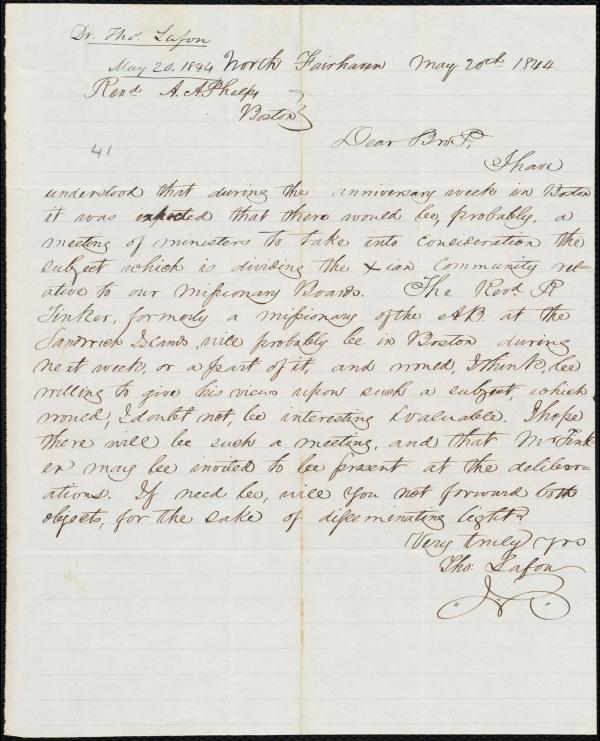 Dr. Thos. Lafon
May 20. 1844 North Fairhaven May 20th 1844
Revd. A. A Phelps
Boston
41
Dear Bro P,
I have
understood that during the anniversary week in Boston
it was expected that there would be, probably, a
meeting of ministers to take into consideration the
subject which is dividing the Xian Community rel-
ative to our Missionary Boards. The Revd. R
Tinker, formerly a missionary of the AB. at the
Sandwich Islands, will probably be in Boston during
next week, or a part of it, and would, I think, be
willing to give his views upon such a subject, which
would, I doubt not, be interesting & valuable. I hope
there will be such a meeting, and that Mr Tink-
er may be invited to be present at the deliber-
ations. If need be, will you not forward both
objects, for the sake of disseminating light?
Very truly yrs
Tho: Lafon